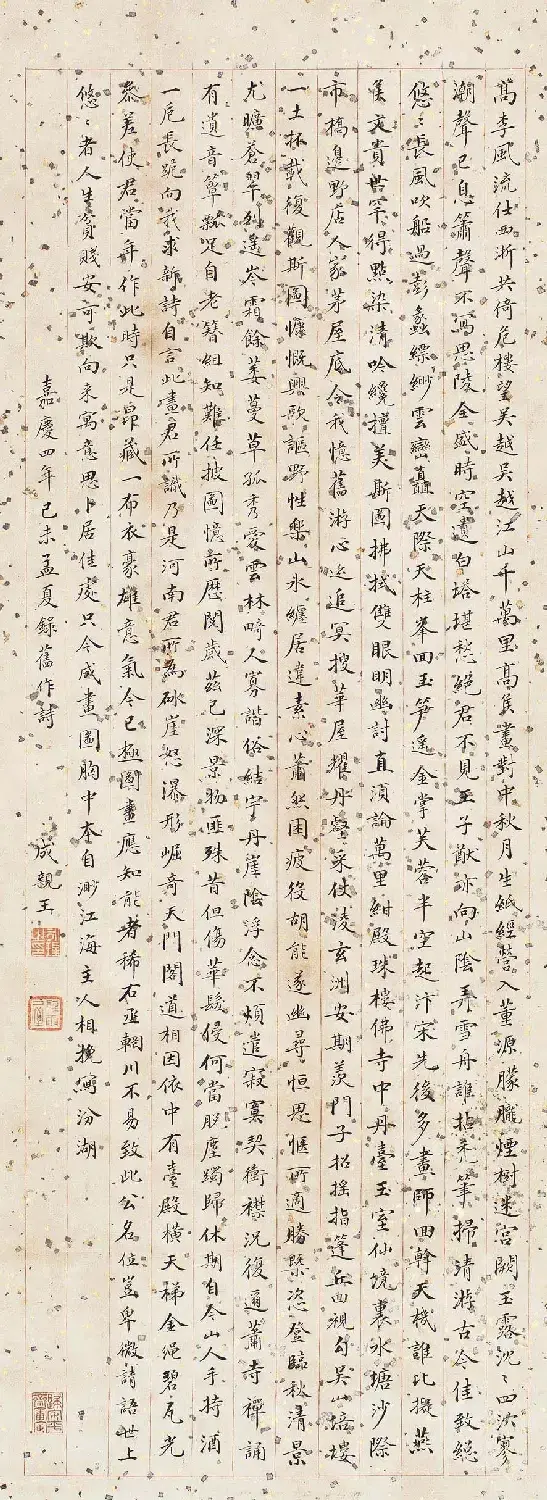 高李風流仕西浙共倚危樓望吳越吳越江山千萬里高侯畫對中秋月生紙經營入董源朦朧煙樹迷宮闕玉露沈〻四泬寥
潮聲已息簫聲不寫思陵全盛時空遺白塔堪愁絕君不見王子猷亦向山陰弄雪舟誰拈禿筆掃清游古今佳致總
悠〻長風吹船過彭蠡縹緲雲巒矗天際天柱峯回玉筍遙金掌芙蓉半空起汴宋先後多畫師回斡天機誰比擬燕
侯文貴世罕得點染清吟纔擅美斯圖拂拭雙眼明幽討直須論萬里紺殿珠樓佛寺中丹臺玉室仙境裏水塘沙際
市橋邊野店人家茅屋底令我憶舊游心迹追冥搜華屋耀丹霞采仗淩玄洲安期羨門子招搖指蓬丘回視勾吳山培塿
一土杯載復觀斯圖慷慨興歌謳野性樂山水纏居違素心蕭然困疲役胡能遂幽尋恒思愜所適勝槩恣登臨秋清景
尤曠蒼翠列遙岑霜餘萎蔓草孤秀愛雲林畸人寡諧俗結宇丹崖陰浮念不煩遣寂寞契衝襟況復通蕭寺禪誦
有遺音簞瓢足自老簪組知難任披圖憶前歷閱歲茲已深景物匪殊昔但傷華髮侵何當脫塵躅歸休期自今山人手持酒
一卮長跪向我求新詩自言此畫君所識乃是河南君所為砅崖怒瀑形崛奇天門閣道相因依中有臺殿橫天梯金繩碧瓦光
參差使君當年作此時只是昂藏一布衣豪雄意氣今已極圖畫應知能者稀右丞輞川不易致此公名位豈卑微請語世上
悠〻者人生貧賤安可欺向來寫意思卜居佳處只今感畫圖胸中本自渺江海主人相挽須汾湖
嘉慶四年己未孟夏錄舊作詩
成親王